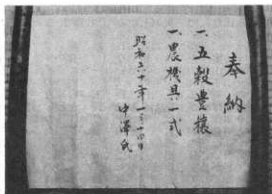 奉納
一、五穀豊穣
一、農機具一式
昭和六十年一月十四日
中澤氏